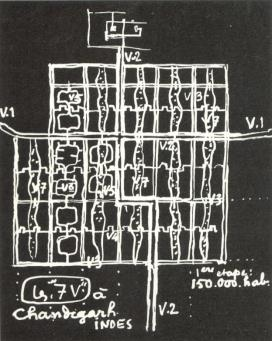 V.2
V5
V.3
V.1
V.7
V.1
V.2
V.7
V8
V5
V7
V3
V4
V5
1ère étape:
150.000.hab.
les "7 V" à
Chandigarh
INDES
V.2